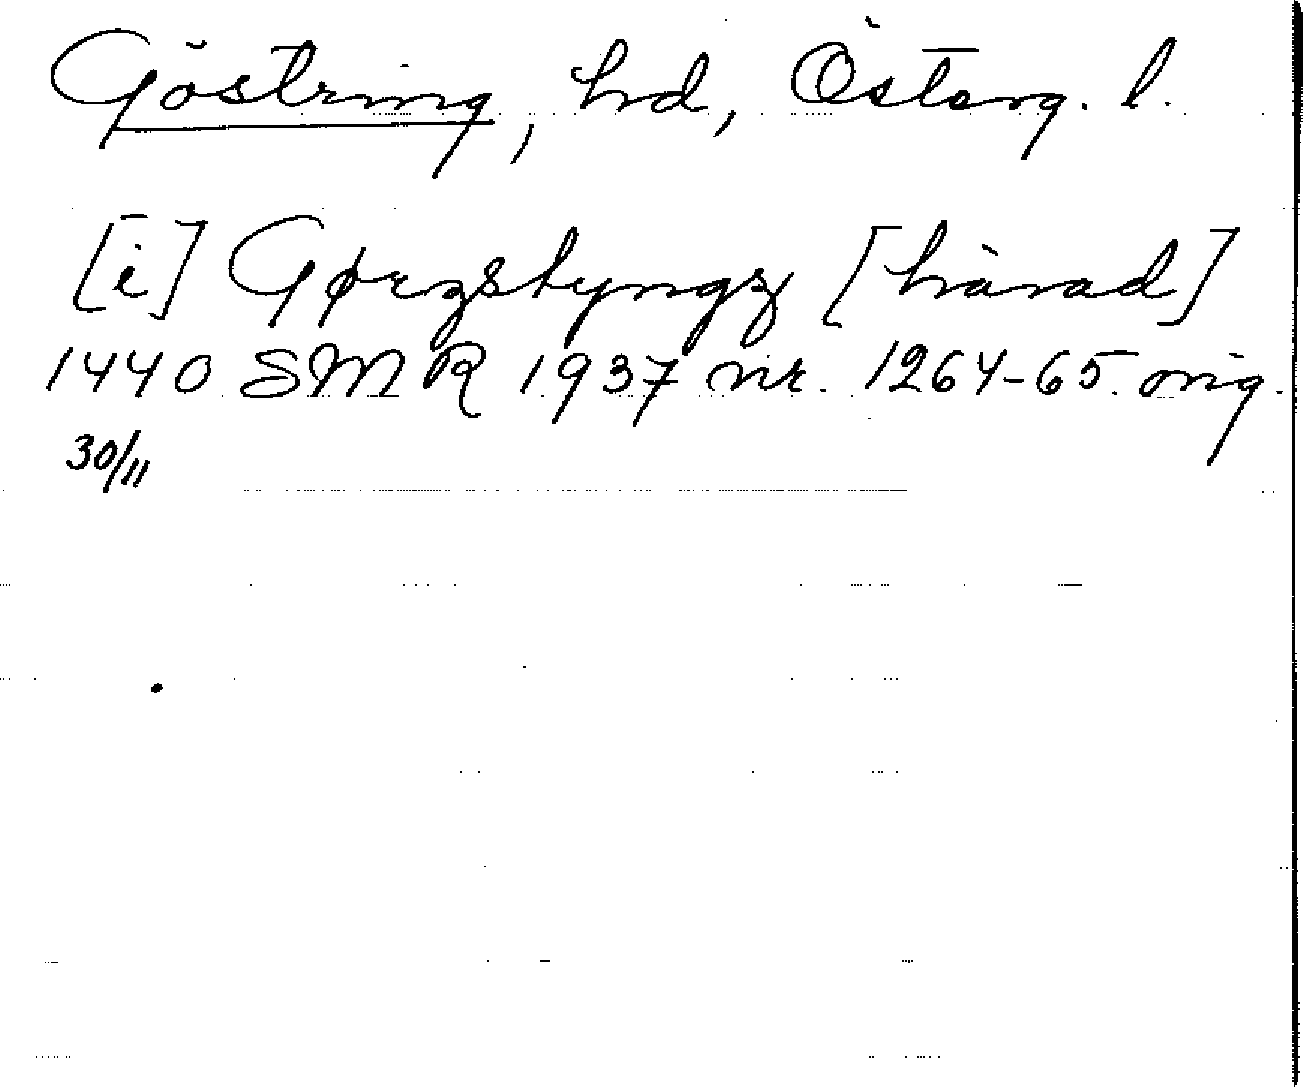 Göstring, hd, Österg. l.
[i] Gørzstyngz [härad]
1440 SMR 1937 nr. 1264-65. orig.
30/11